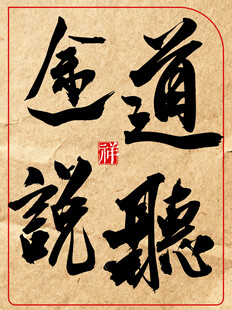 道聽
途說
祥